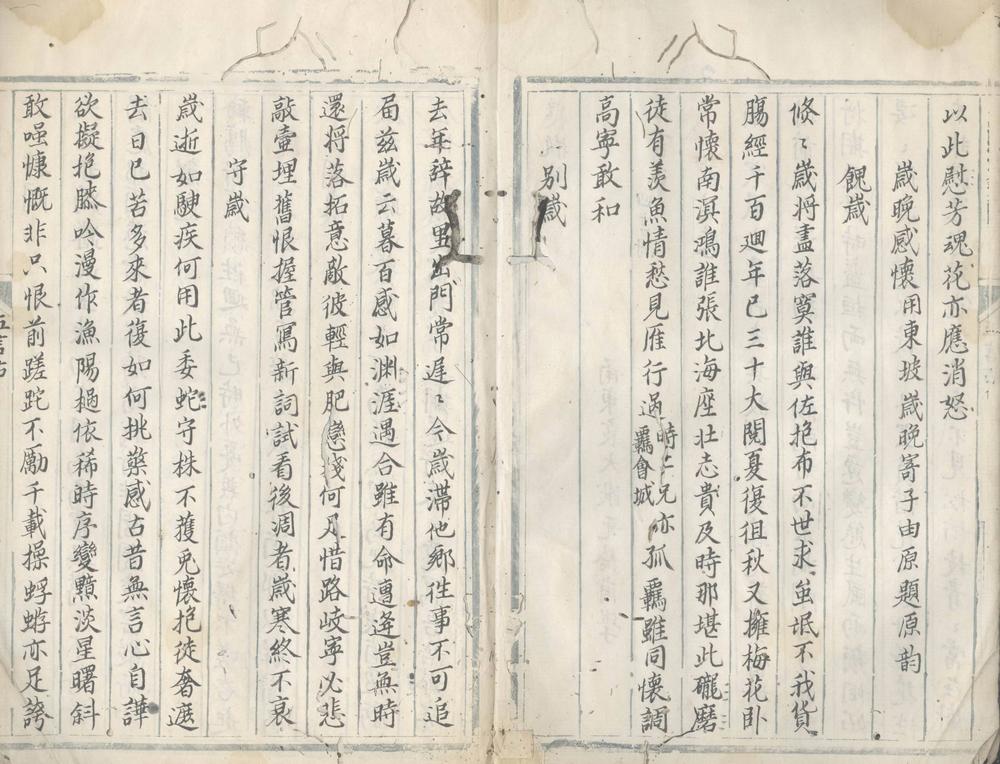 以此慰芳魂花亦應消怒
歲晚感懷用東坡歲晚寄子由原題原韵
餽歲
倏〻歲將盡落寞誰與佐抱布不世求蚩氓不我貨
腸經千百迴年已三十大閱夏復徂秋又擁梅花卧
常懷南溟鴻誰張北海座壯志貴及時那堪此礲磨
徒有羨魚情愁見雁行過時二兄羈會城亦孤羈雖同懷調
高寧敢和
別歲
去年辭故里出門常遲〻今歲滯他鄉徃事不可追
屆茲歲云暮百感如淵涯遇合雖有命遭逢豈無時
還將落拓意敵彼輕與肥戀棧何足惜路岐寧必悲
敲壺埋舊恨握管寫新詞試看後凋者歲寒終不衰
守歲
歲逝如駛疾何用此委蛇守株不獲兔懷抱徒奢遮
去日已苦多來者復如何挑藥感古昔無言心自譁
欲擬抱膝吟漫作漁陽檛依稀時序變黯淡星曙斜
敢嗤慷慨非只恨前蹉跎不勵千載操蜉蝣亦足誇
五言古